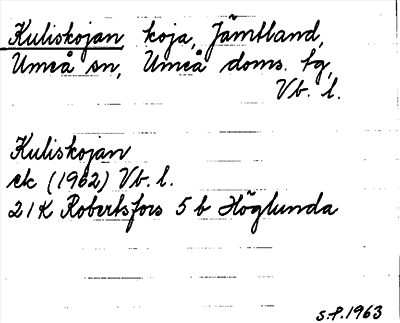 Kuliskojan koja, Jämtland,
Umeå sn, Umeå doms. tg,
Vb. l.
Kuliskojan
ek (1962) Vb. l.
21K Robertsfors 5 b Höglunda
S.P. 1963